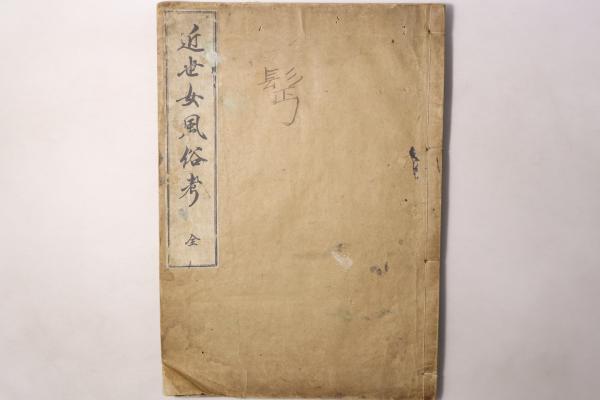 近世女風俗考
全